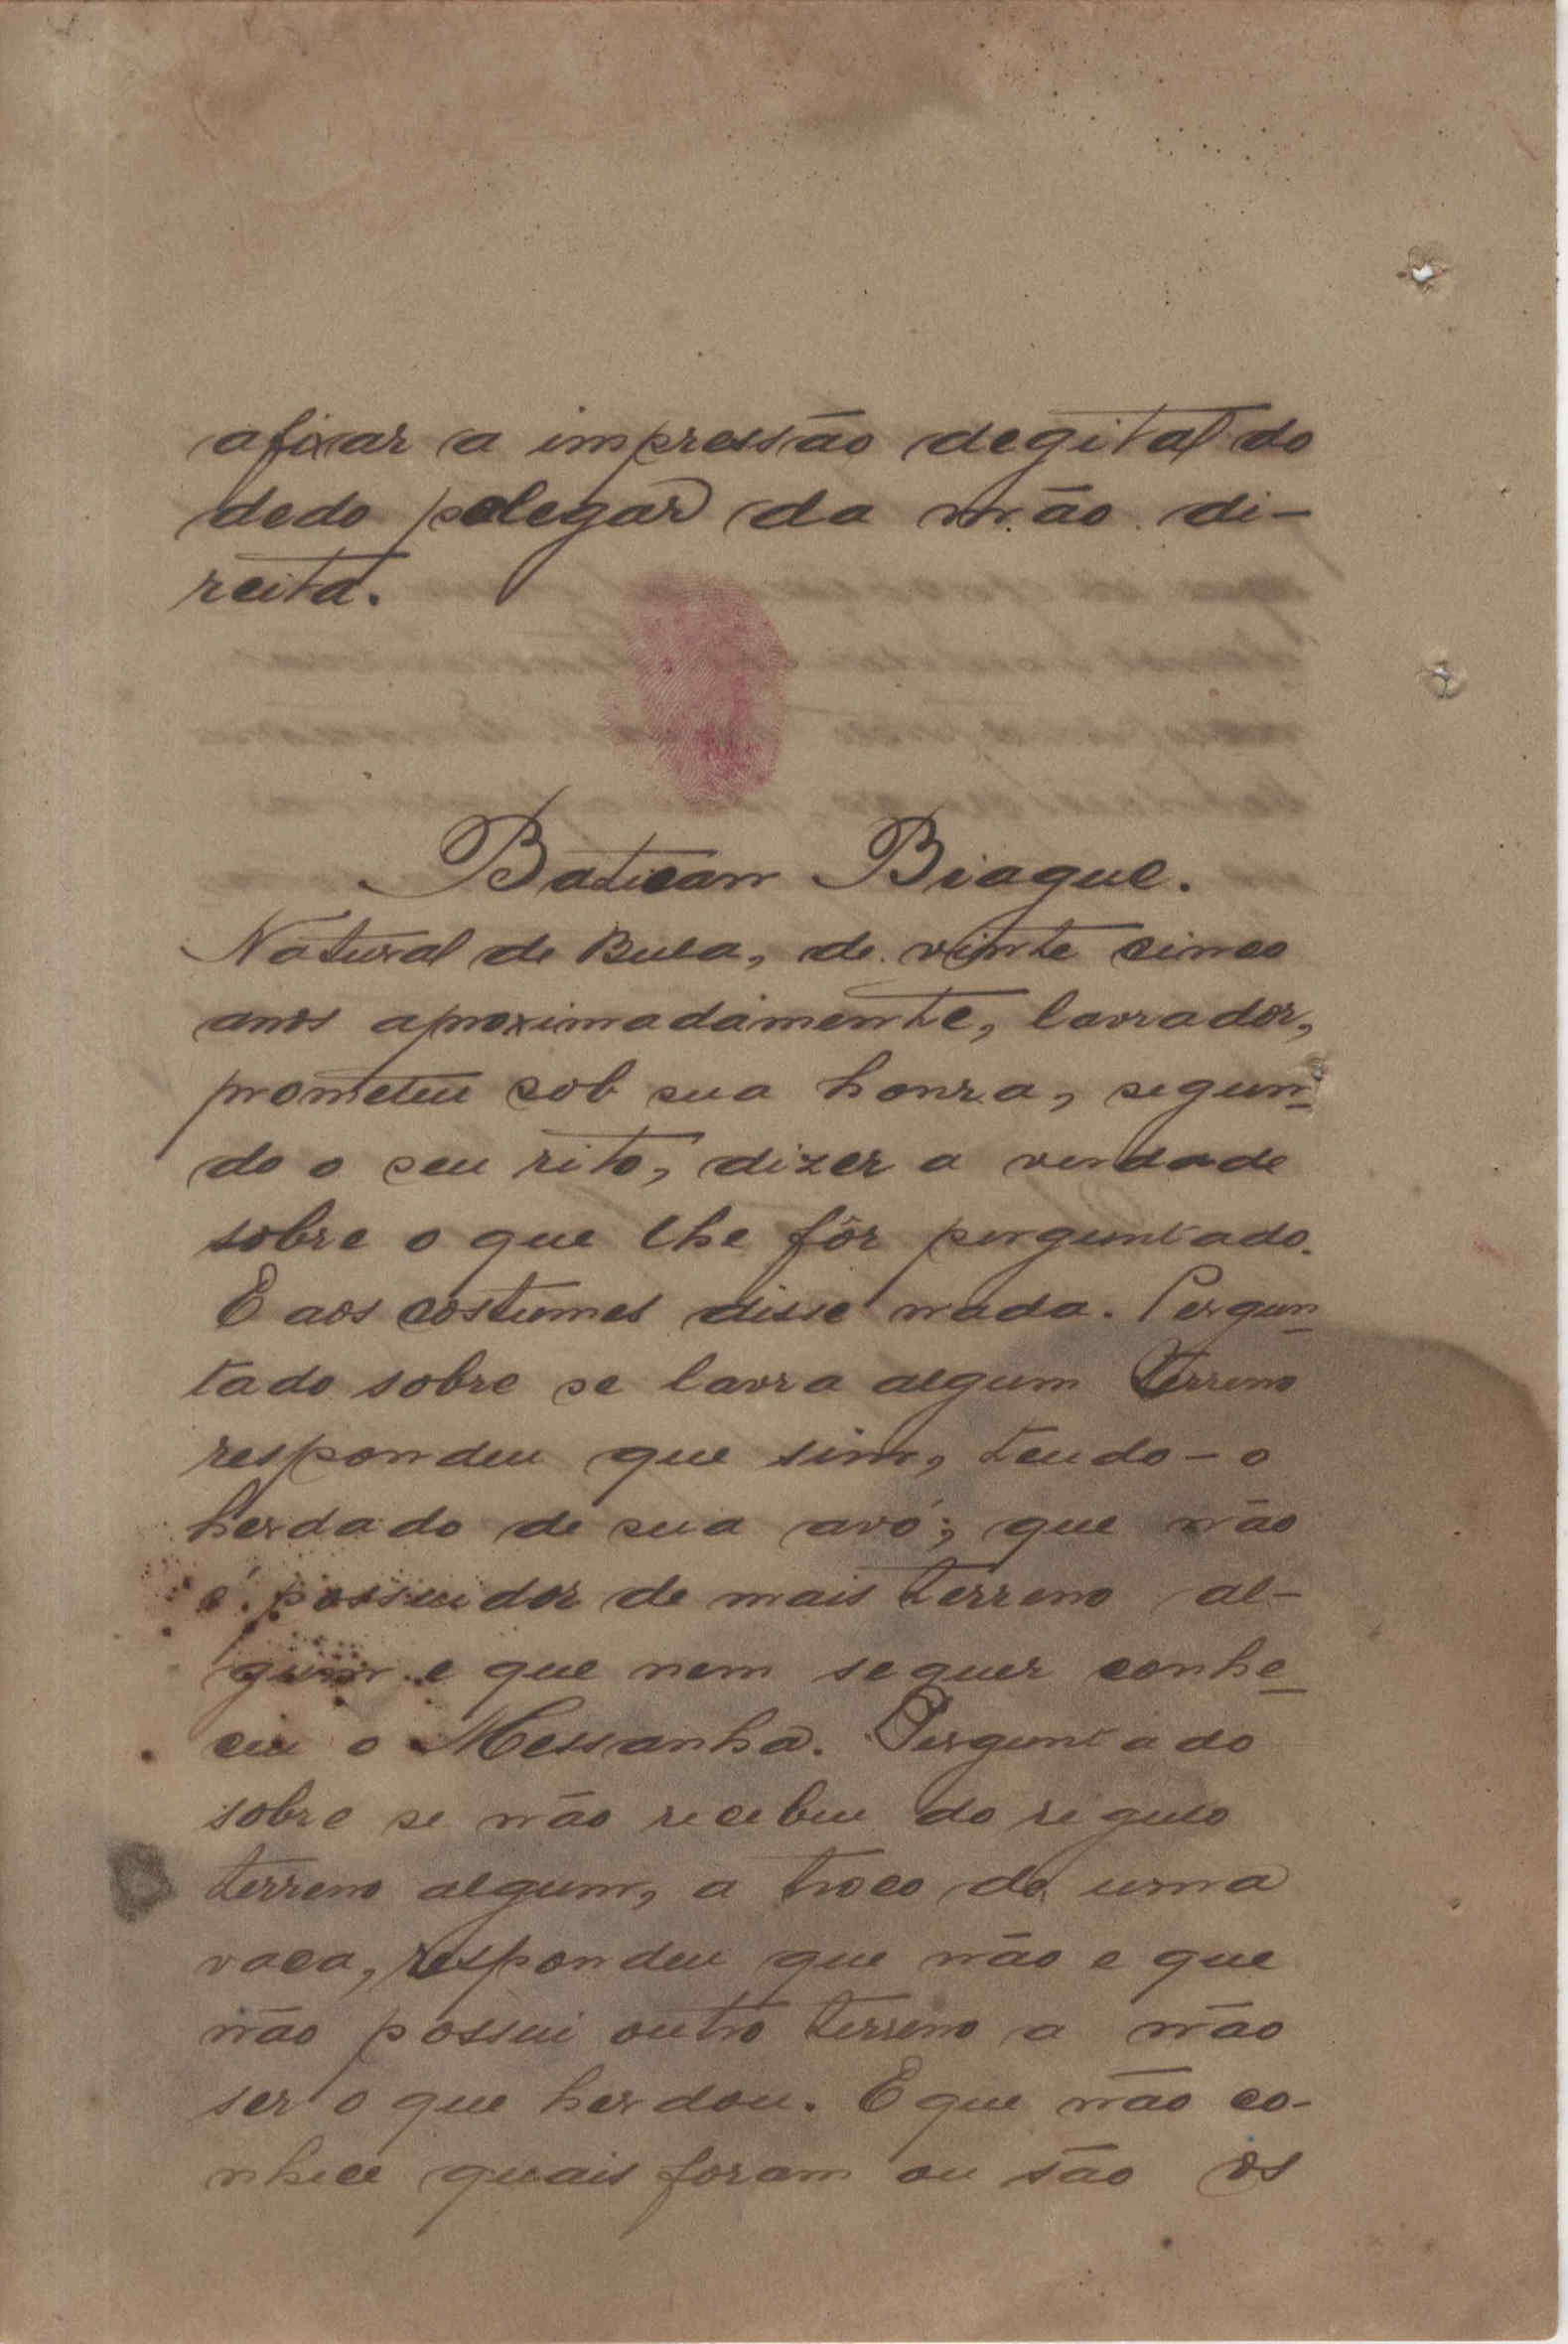 afixar a impressão degital do
dedo polegar da mão di-
reita.
Batican Biague.
Natural de Bula, de vinte cinco
anos aproximadamente, lavrador,
prometeu sob sua honra, segun-
do o seu rito, dizer a verdade
sobre o que lhe fôr perguntado.
E aos costumes disse nada. Pergun-
tado sobre se lavra algum terreno
respondeu que sim, tendo-o
herdado de sua avó; que não
é possuidor de mais terreno al-
gum e que nem sequer conhe-
ceu o Messanha. Perguntado
sobre se não recebeu do regulo
terreno algum, a troco de uma
vaca, respondeu que não e que
não possui outro terreno a não
ser o que herdou. E que não co-
nhece quais foram ou são os